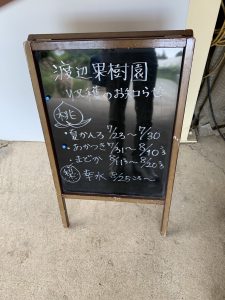 渡辺果樹園
収穫のお知らせ
桃
・夏かんろ 7/23〜7/30
・あかつき 7/31〜8/10頃
・まどか 8/13〜8/20頃
梨 幸水 8/25ころ〜